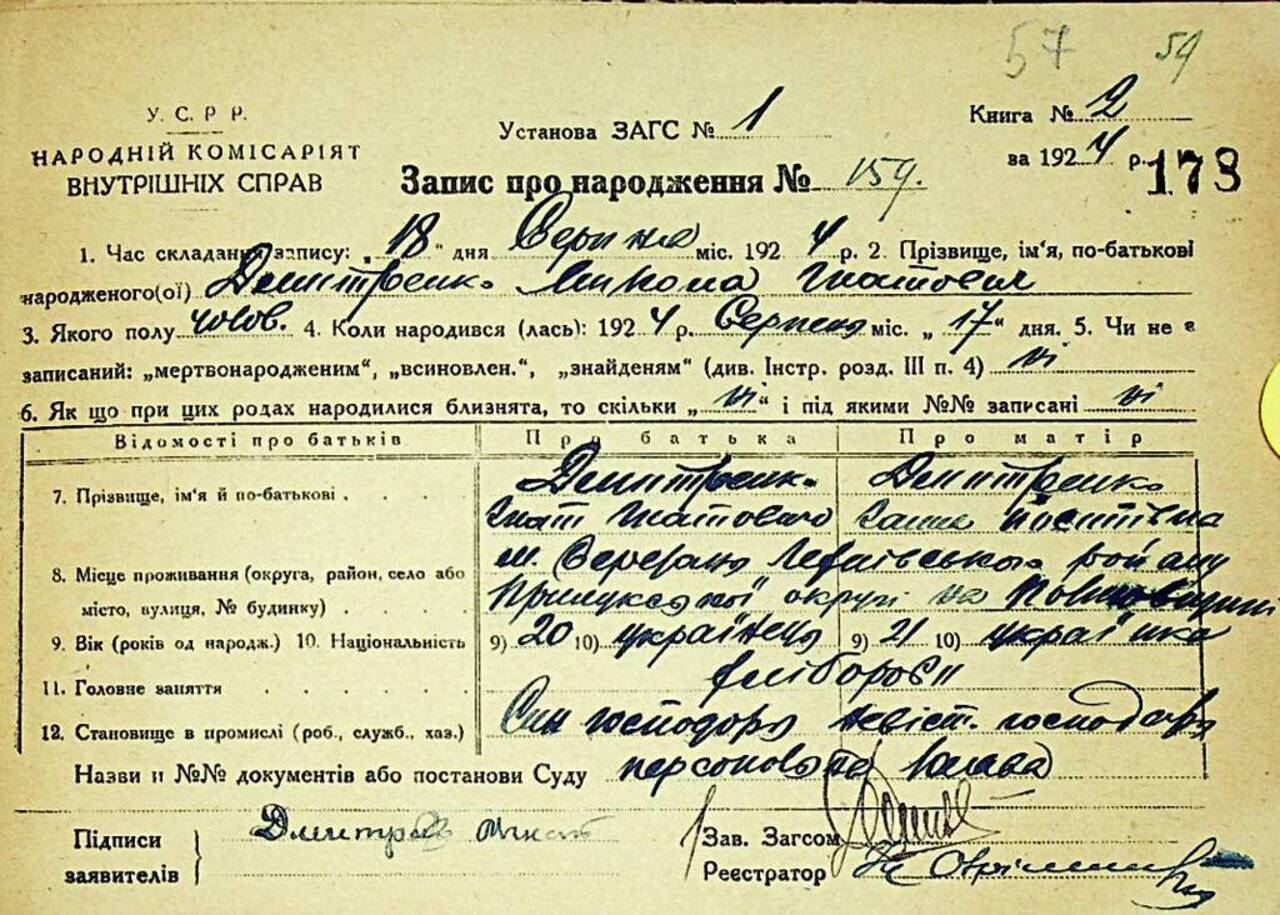 57 59
У. С. Р Р.
НАРОДНІЙ КОМІСАРІЯТ
ВНУТРІШНІХ СПРАВ
Установа ЗАГС № 1
Книга № 2
за 1924 р.
173
Запис про народження № 159.
1. Час складання запису: „18“ дня Серпня міс. 1924 р. 2. Прізвище, ім'я, по-батькові
народженого(ої) Дмитренко Микола Гнатович
3. Якого полу чолов. 4. Коли народився (лась): 1924 р. Серпня міс. „17“ дня. 5. Чи не є
записаний: „мертвонародженим“, „всиновлен.“, „знайденям“ (див. Інстр. розд. III п. 4) ні
6. Як що при цих родах народилися близнята, то скільки „ні“ і під якими №№ записані ні
Відомості про батьків Про батька Про матір
7. Прізвище, ім'я й по-батькові . . . . Дмитренко Дмитренко
Гнат Гнатович Ганна
8. Місце проживання (округа, район, село або м. району
місто, вулиця, № будинку) . . . . Прилуцької округи на
9. Вік (років од народж.) 10. Національність 9) 20 10) українець 9) 21 10) українка
11. Головне заняття . . . . . хлібороби
12. Становище в промислі (роб., служб., хаз.) Син господаря невіст. господаря
Назви и №№ документів або постанови Суду персонова
Підписи
заявителів
Дмитренко Гнат
Зав. Загсом
Реєстратор